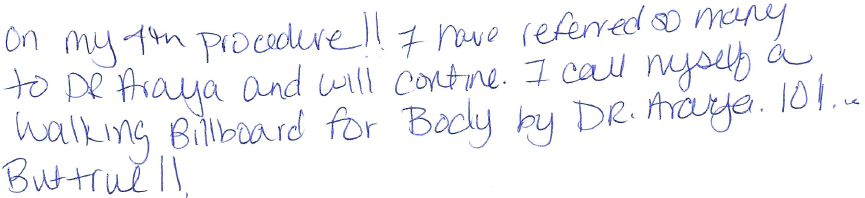 On my 4th procedure!! I have referred so many
to DR Araya and will contine. I call myself a
Walking Billboard for Body by DR. Araya. 101...
But true!!